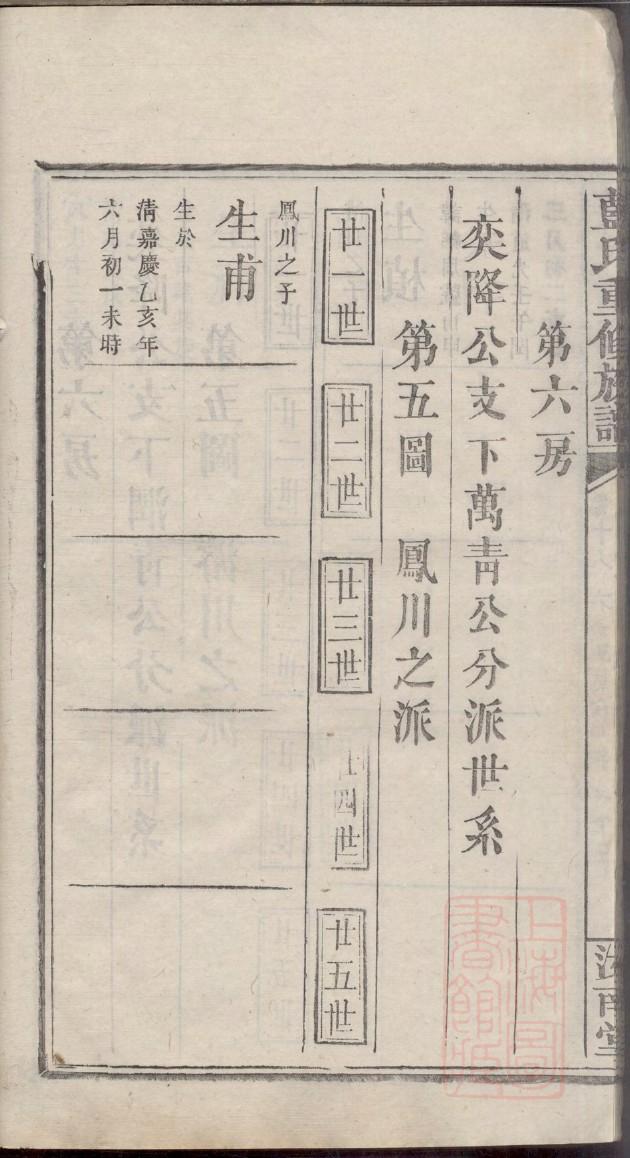 藍氏重修族譜
汝南堂
第六房
奕降公支下萬青公分派世系
第五圖　鳳川之派
廿一世
廿二世
廿三世
廿四世
廿五世
鳳川之子
生甫
生於
清嘉慶乙亥年
六月初一未時
上海圖
書館藏